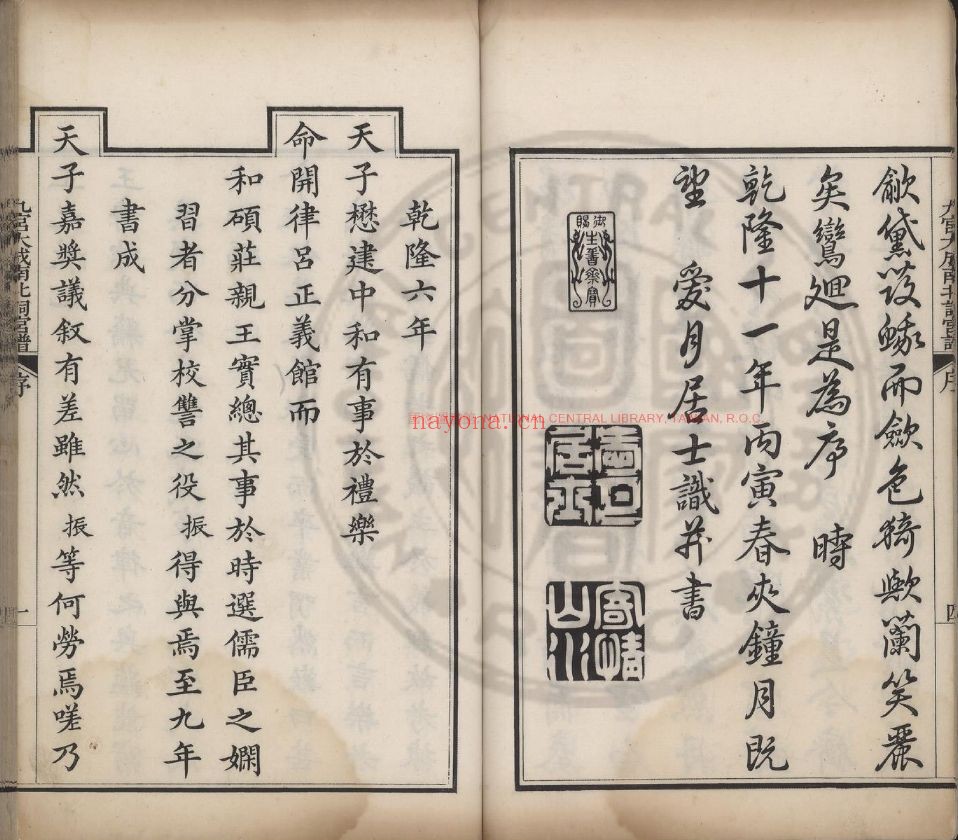 歛黛跤蛾而斂色猗歟蘭笑麗
矣鸞廻是為序　時
乾隆十一年丙寅春夾鐘月既
望　愛月居士識并書
御賜
士書樂寶
愛月居士
寄情山水
九宮大成南北詞宮譜　序　四
乾隆六年
天子懋建中和有事於禮樂
命開律呂正義館而
和碩莊親王實總其事於時選儒臣之嫻
習者分掌校讐之役振得與焉至九年
書成
天子嘉獎議叙有差雖然振等何勞焉嗟乃
九宮大成南北詞宮譜　序　一
NATIONAL CENTRAL LIBRARY, TAIWAN, R.O.C
nayona.cn